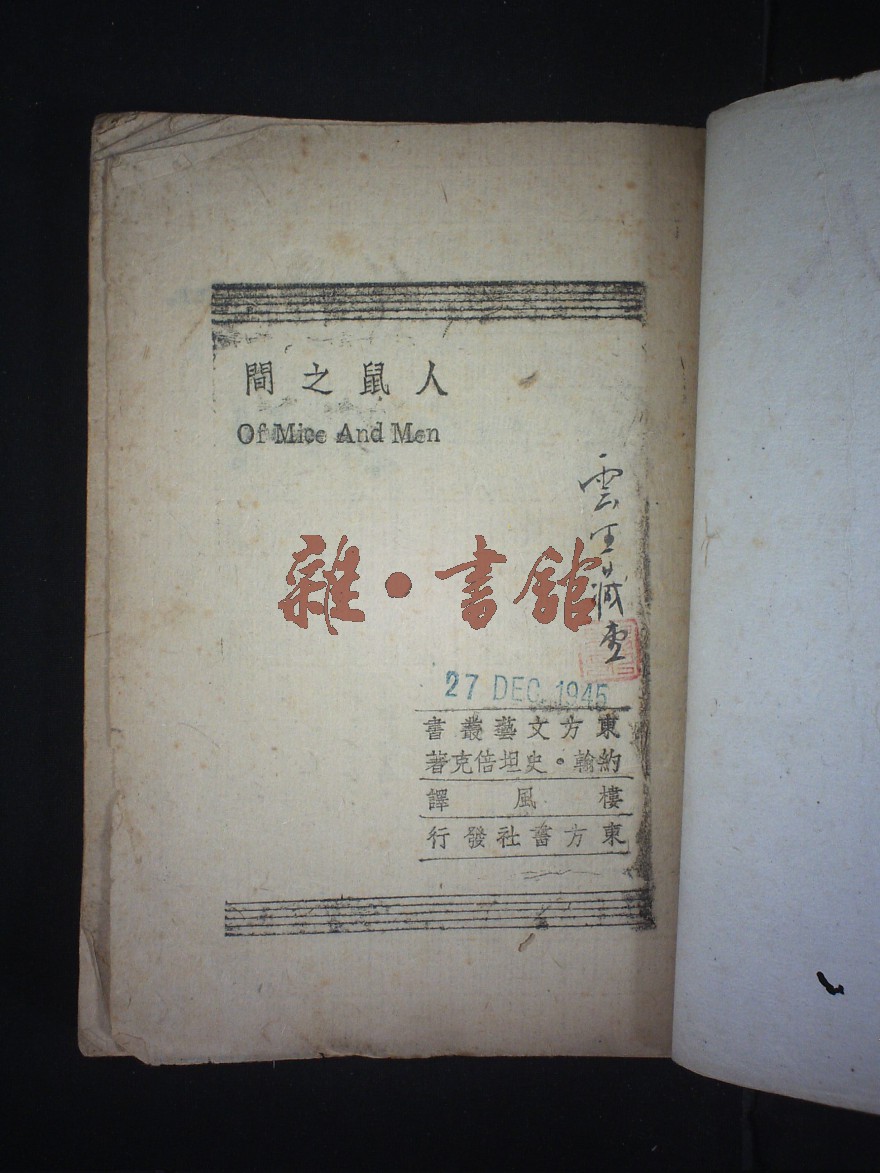 人鼠之間
Of Mice And Men
雲
雜·書館
27 DEC. 1945
東方文藝叢書
約翰·史坦倍克著
樓風譯
東方書社發行